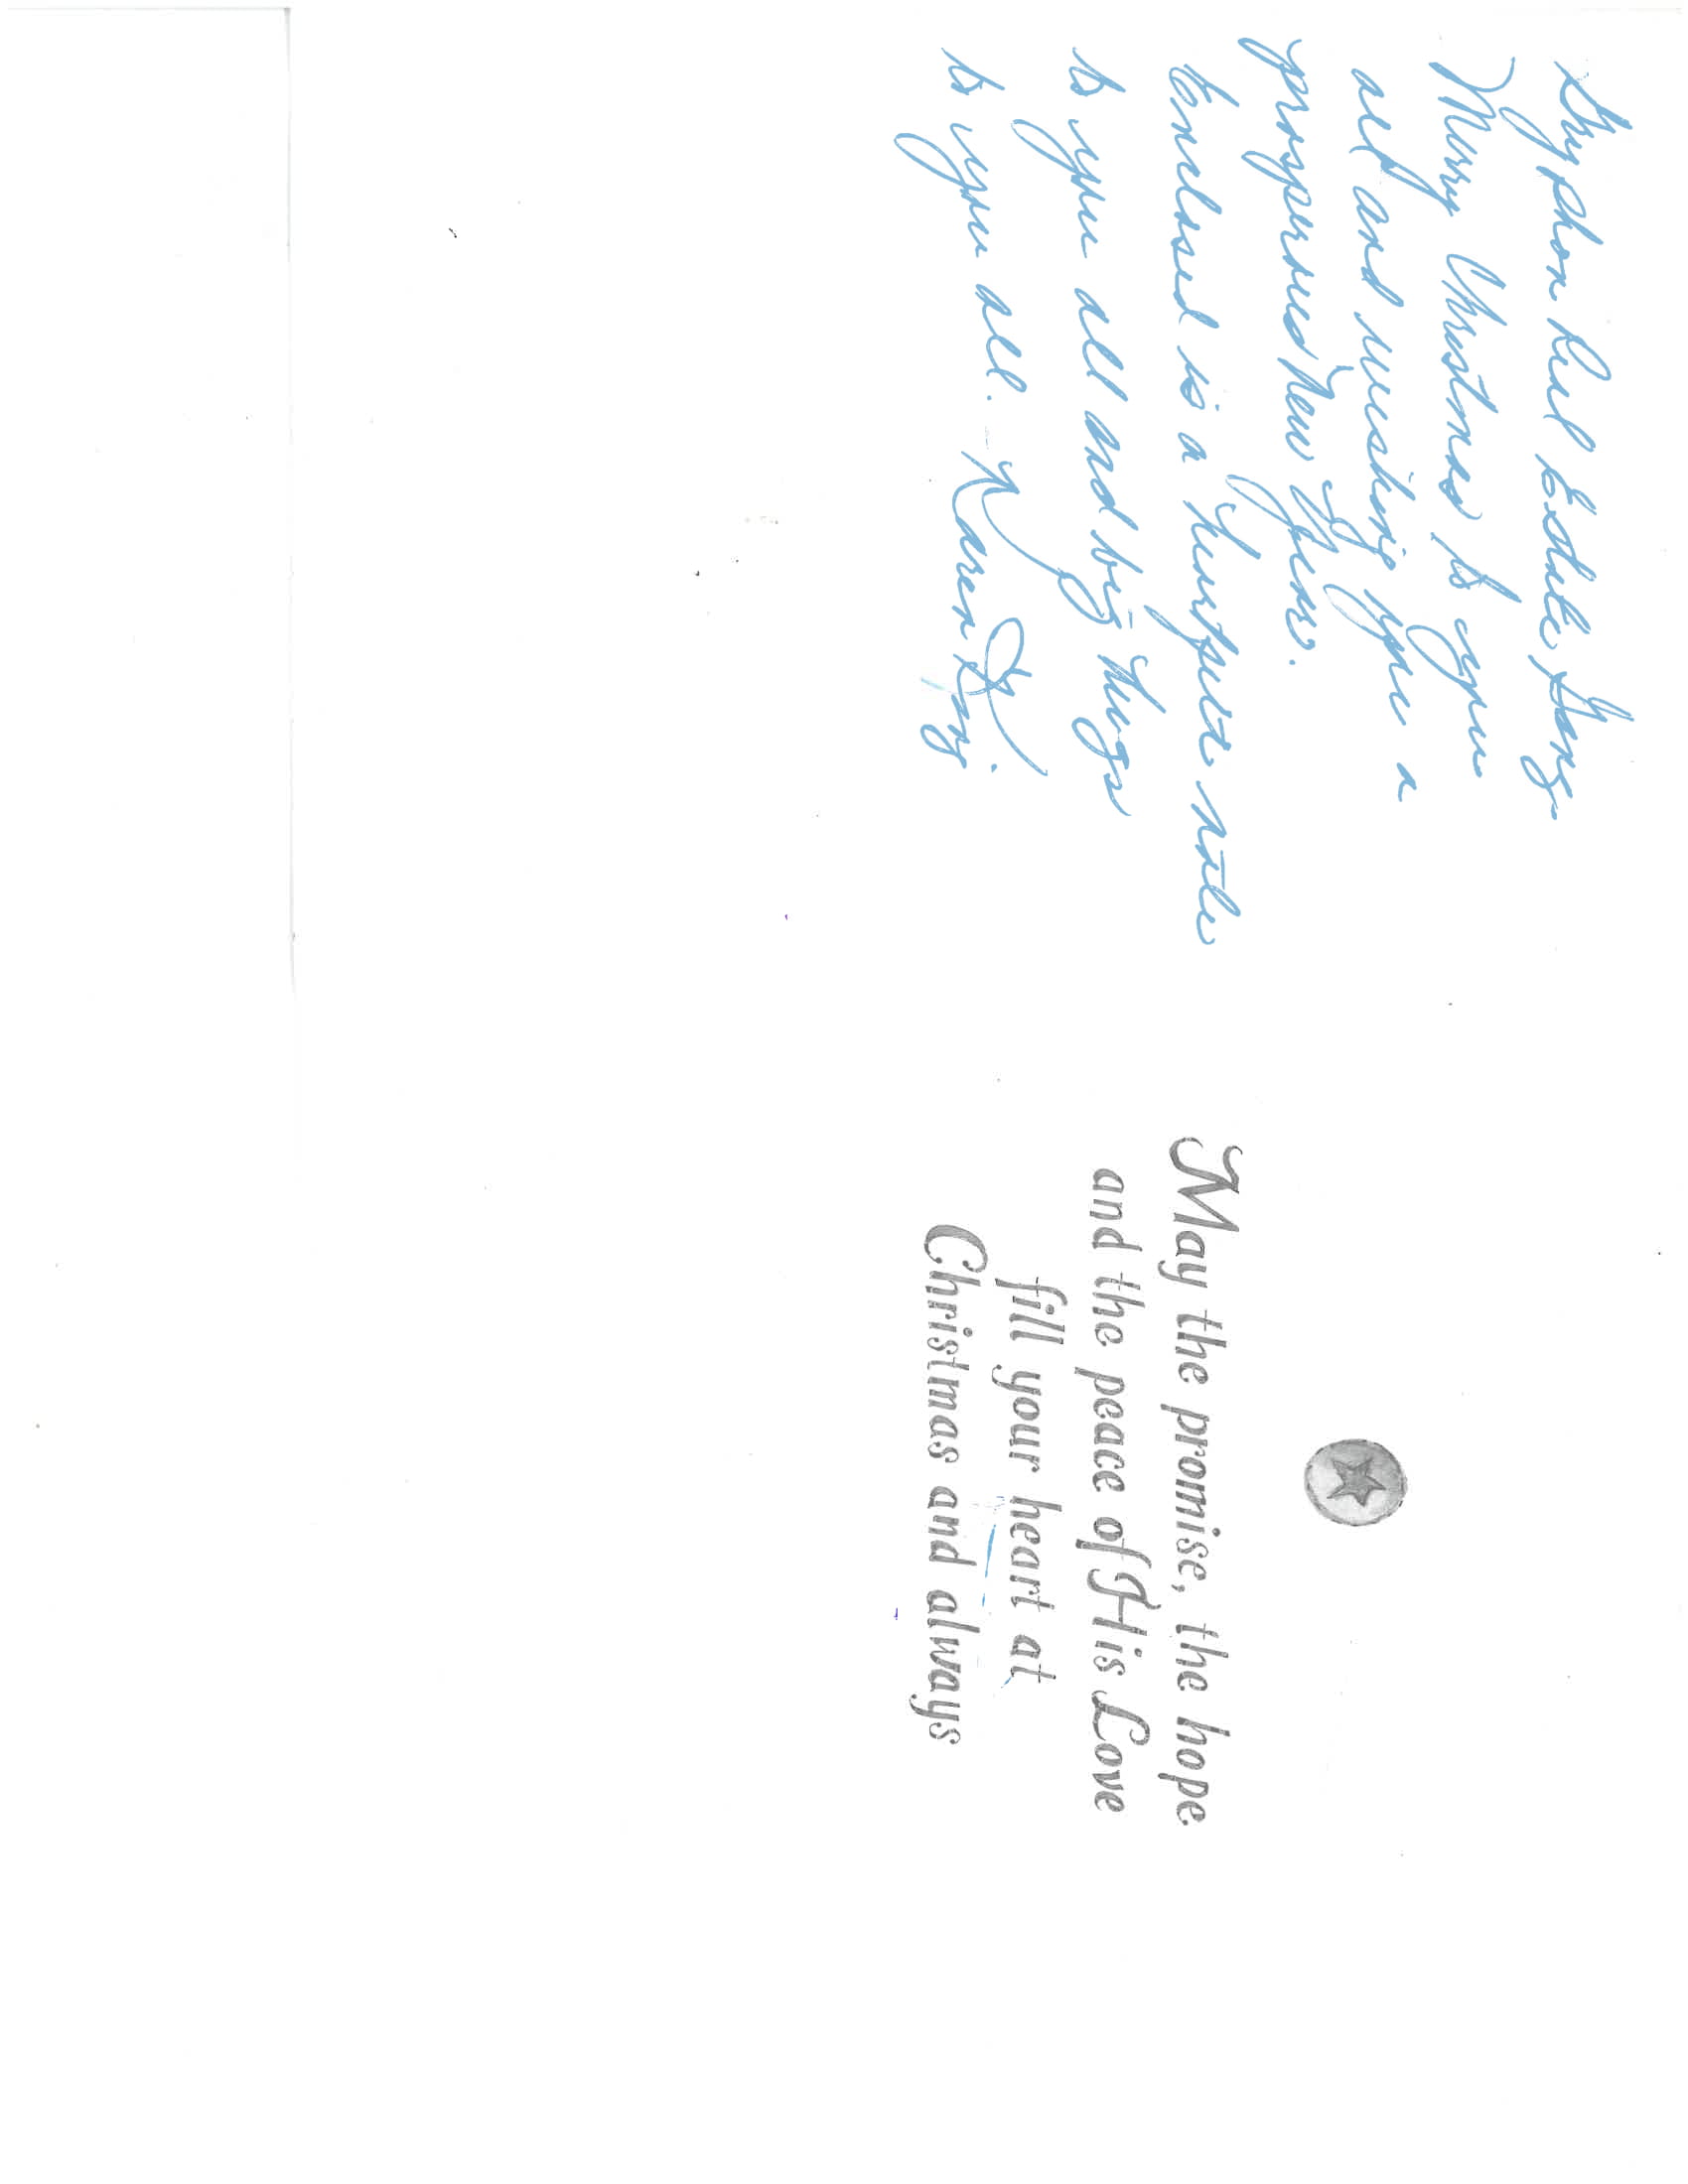 Gryphon Real Estate Gang
Merry Christmas to you
all and wishing you a
prosperous New Year.
Enclosed is a heartfelt note
to you all and big hugs
to you all. Karen
King
May the promise, the hope
and the peace of His Love
fill your heart at
Christmas and always